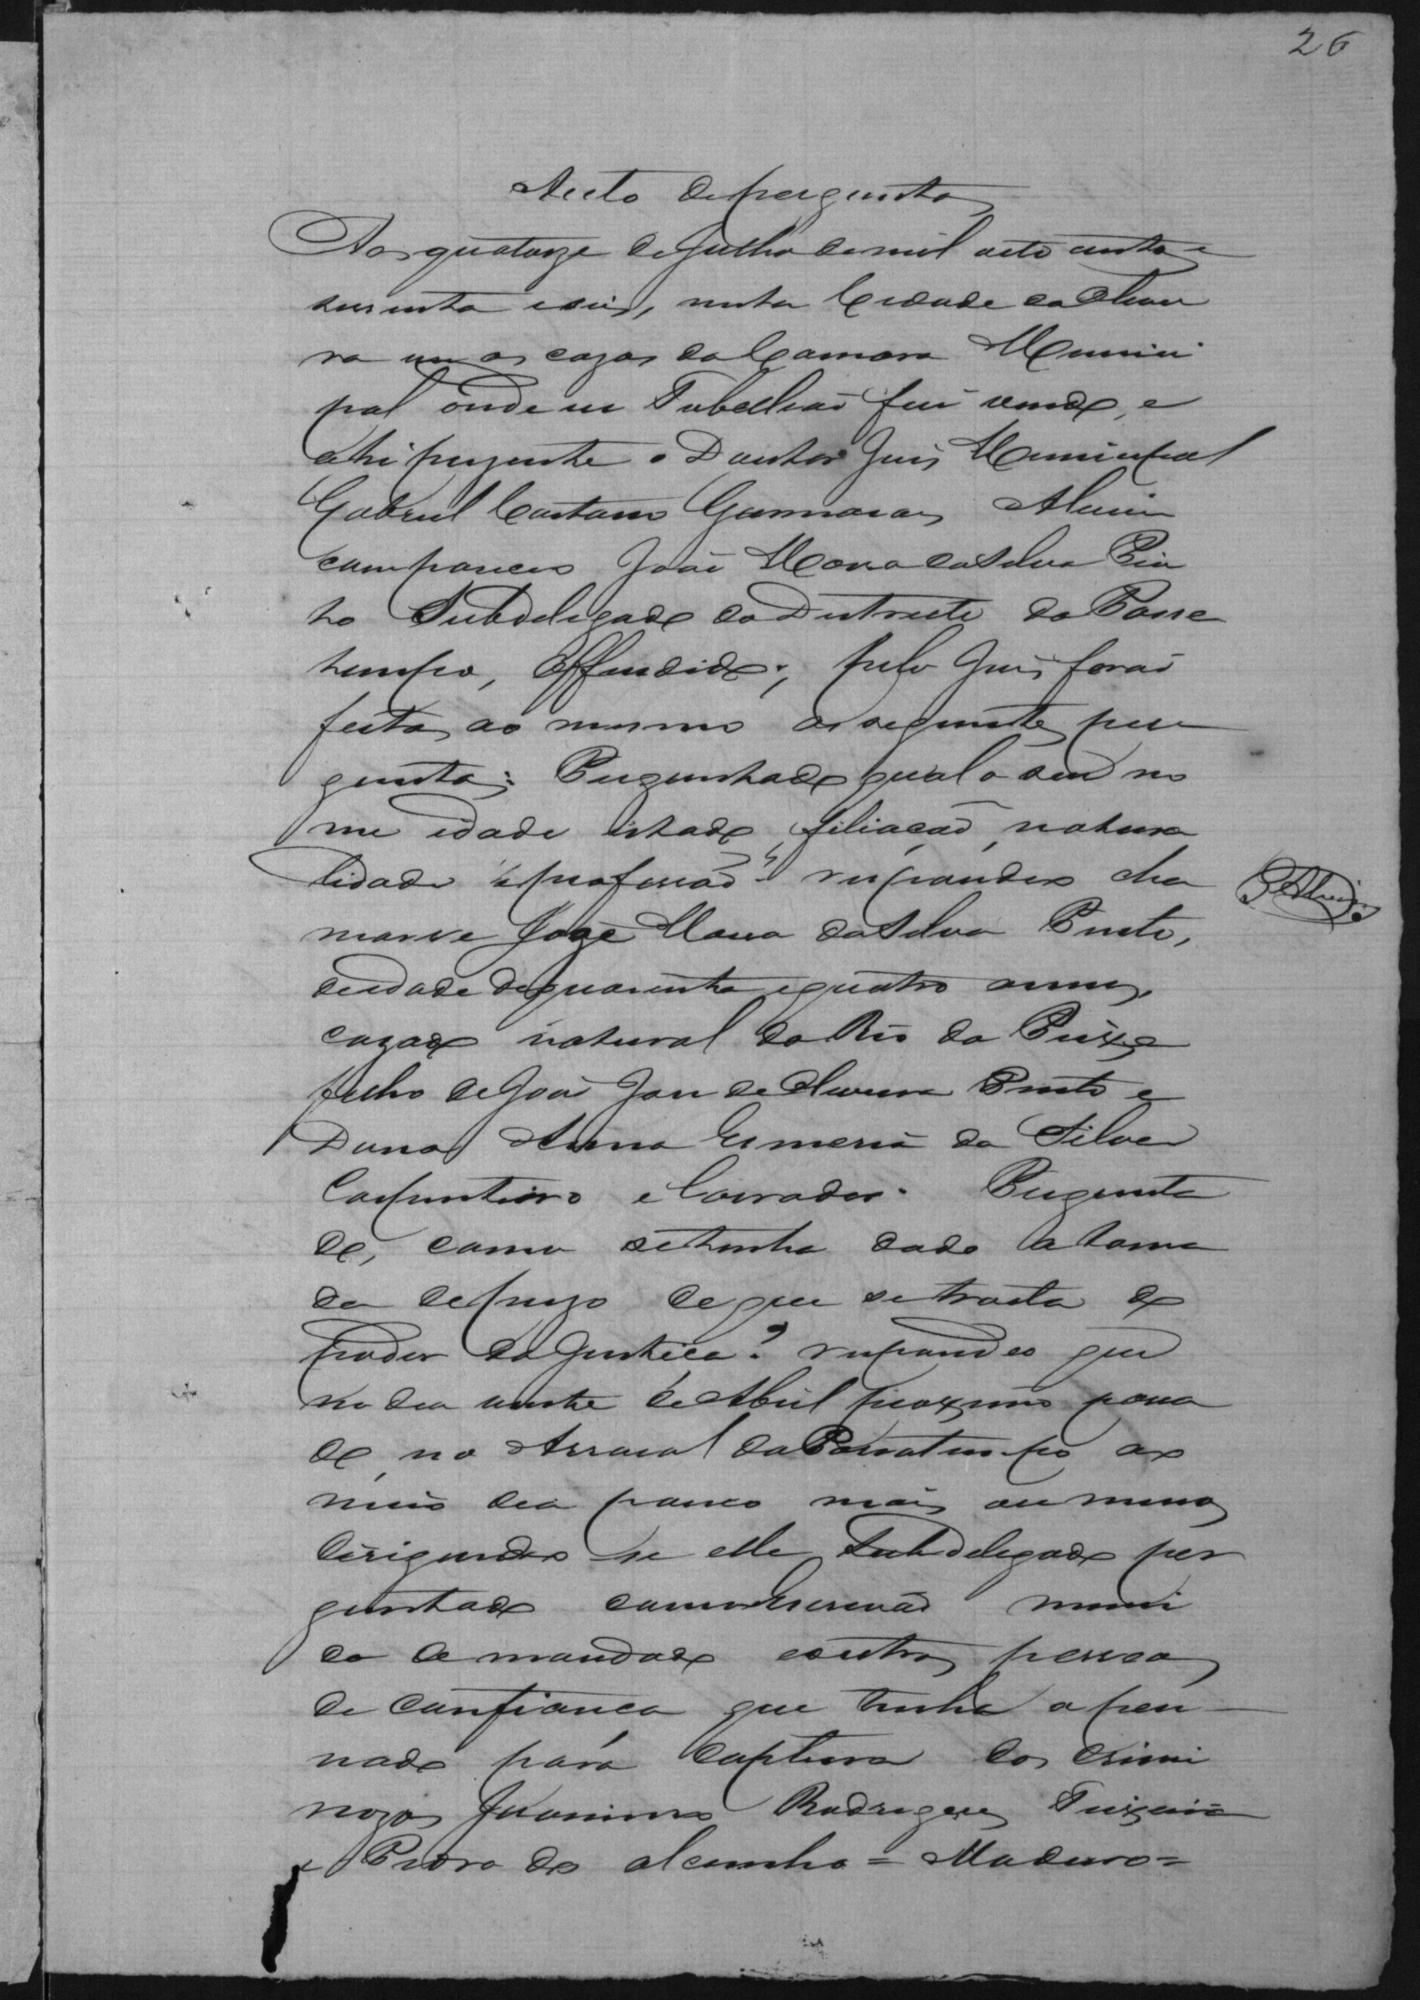 26
Aucto de perguntas
Aos quatorze de Julho de mil oito centos e
secenta e seis, nesta Cidade da Olivei
ra em as cazas da Camara Munici
pal onde eu Tabelliaõ fui vindo, e
ahi prezente o Doutor Juis Municipal
Gabriel Caetano Guimaraes Alvim
compareceo Joaõ Maria da Silva Pin
to Subdelegado do Districto do Passa
tempo, Offendido; pelo Juis foraõ
feitas ao mesmo as seguintes per
guntas: Perguntado qual o seu no
me idade estado, filiaçaõ, natura
lidade e profissaõ? respondeo cha
marse Joze Maria da Silva Pinto,
de idade de quarenta e quatro annos,
cazado natural do Rio do Peixe
filho de Joaõ Joze de Oliveira Pinto e
Dona Anna Esmeria da Silva
Carpinteiro e Lavrador. Pergunta
do, como se tinha dado a toma
da de prezo de que se tracta do
poder da Justiça? respondeo que
no dia vinte de Abril proximo passa
do, no Arraial do Passatempo ao
meio dia pouco mais ou menos
dirigindo se elle Subdelegado per
guntado com o Escrivaõ muni
do de mandado e outras pessoas
de confiança que tinha apen
nado para captura dos crimi
nozos Jeronimo Rodrigues Teixeira
e Pedro de alcunha = Maduro =